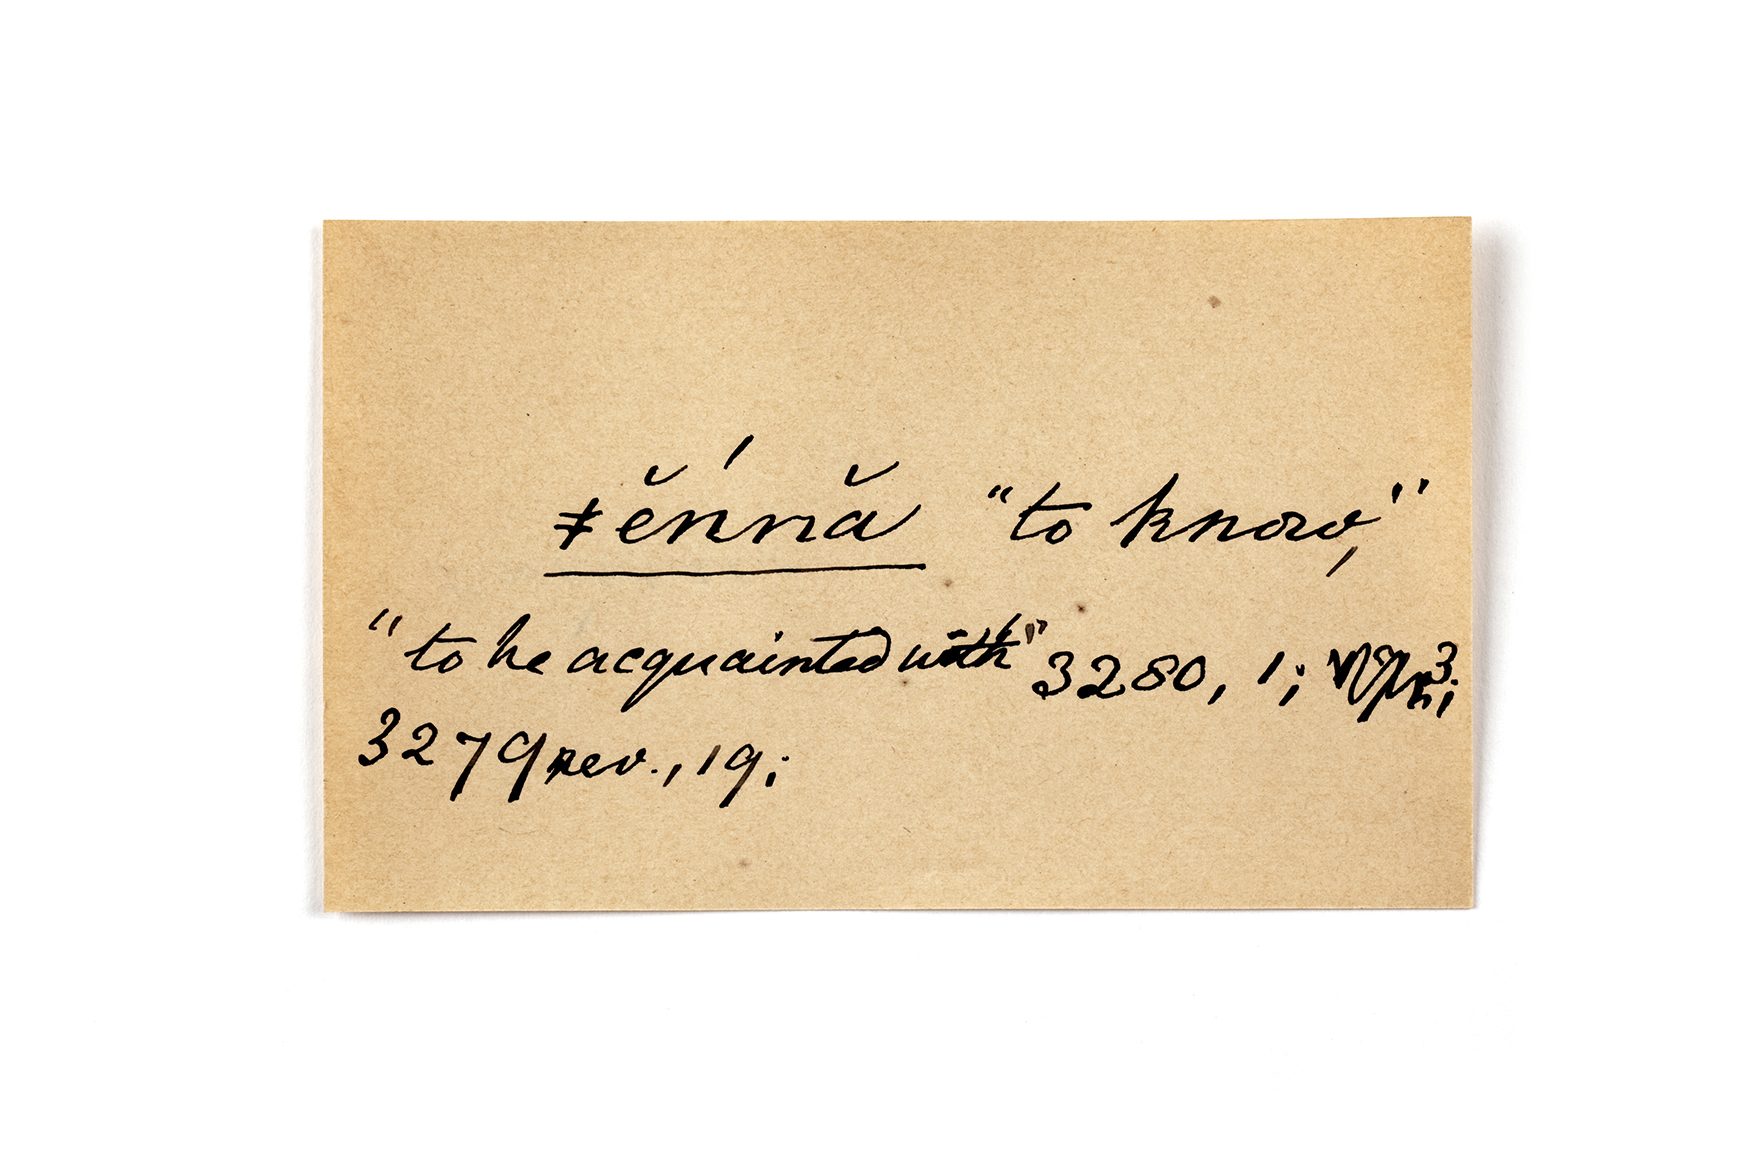 ǂĕńnă "to know,"
"to be acquainted with" 3280, 1;
3279 rev., 19;